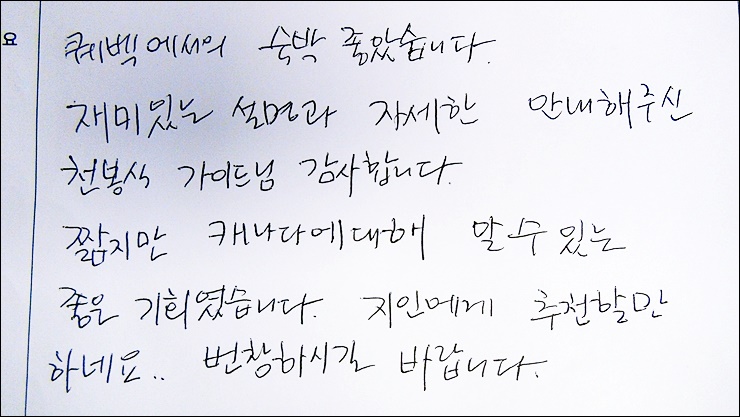 요
퀘벡에서의 숙박 좋았습니다.
재미있는 설명과 자세한 안내해주신
천봉식 가이드님 감사합니다.
짧지만 캐나다에대해 알수있는
좋은 기회였습니다. 지인에게 추천할만
하네요.. 번창하시길 바랍니다.